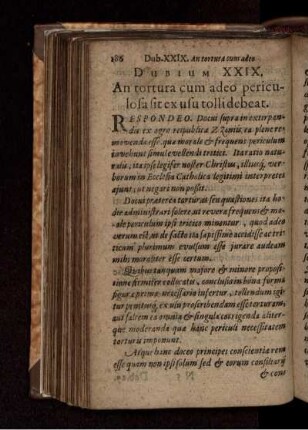 186 Dub. XXIX. An tortura cum adeo
DUBIUM XXIX.
An tortura cum adeo pericu-
losa sit ex usu tolli debeat.
RESPONDEO. Docui supra in extirpen-
dis ex agro reipublica Zizaniis, ea plene re-
movenda esse, quæ morale & frequens periculum
involvunt simul evellendi tritici. Ita ratio natu-
ralis, ita ipse legifer noster Christus, illiusq, ver-
borum in Ecclesia Catholica legitimi interpretes
ajunt, ut negari non possit.
Docui præterea torturas seu quæstiones ita ho-
die administrari solere, ut revera frequens & mo-
rale periculum ipsi tritico minentur, quod adeo
verum est, ut de facto ita sæpissime acciderit ac tri-
ticum plurimum evulsum esse jurare audeam
mihi moraliter esse certum.
Quibus tanquam majore & minore propositi-
one firmiter collocatis, conclusio in bona for-
ma necessario infertur, tollendum igi-
tur penitus, ex usu proscribendam esse torturam,
aut saltem ea omnia & singula corrigenda aliter-
que moderanda quæ hanc periculi necessitatem
torturis imponunt.
Atque hinc doceo principes conscientiæ rem
esse quam non ipsi solum sed & eorum consiliarij
& con-